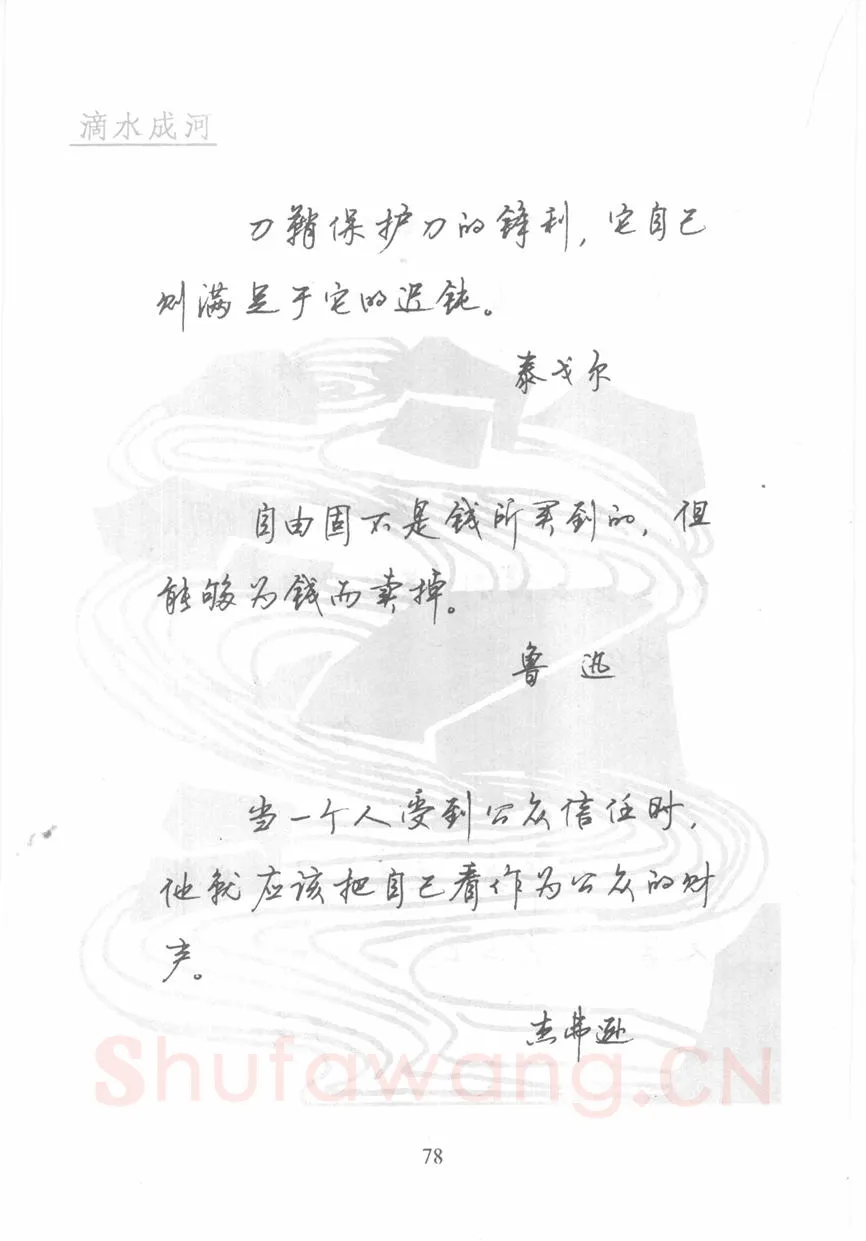 滴水成河
刀鞘保护刀的锋利，它自己
则满足于它的迟钝。
泰戈尔
自由固不是钱所买到的，但
能够为钱而卖掉。
鲁迅
当一个人受到公众信任时，
他就应该把自己看作为公众的财
产。
杰弗逊
Shufawang.CN
78